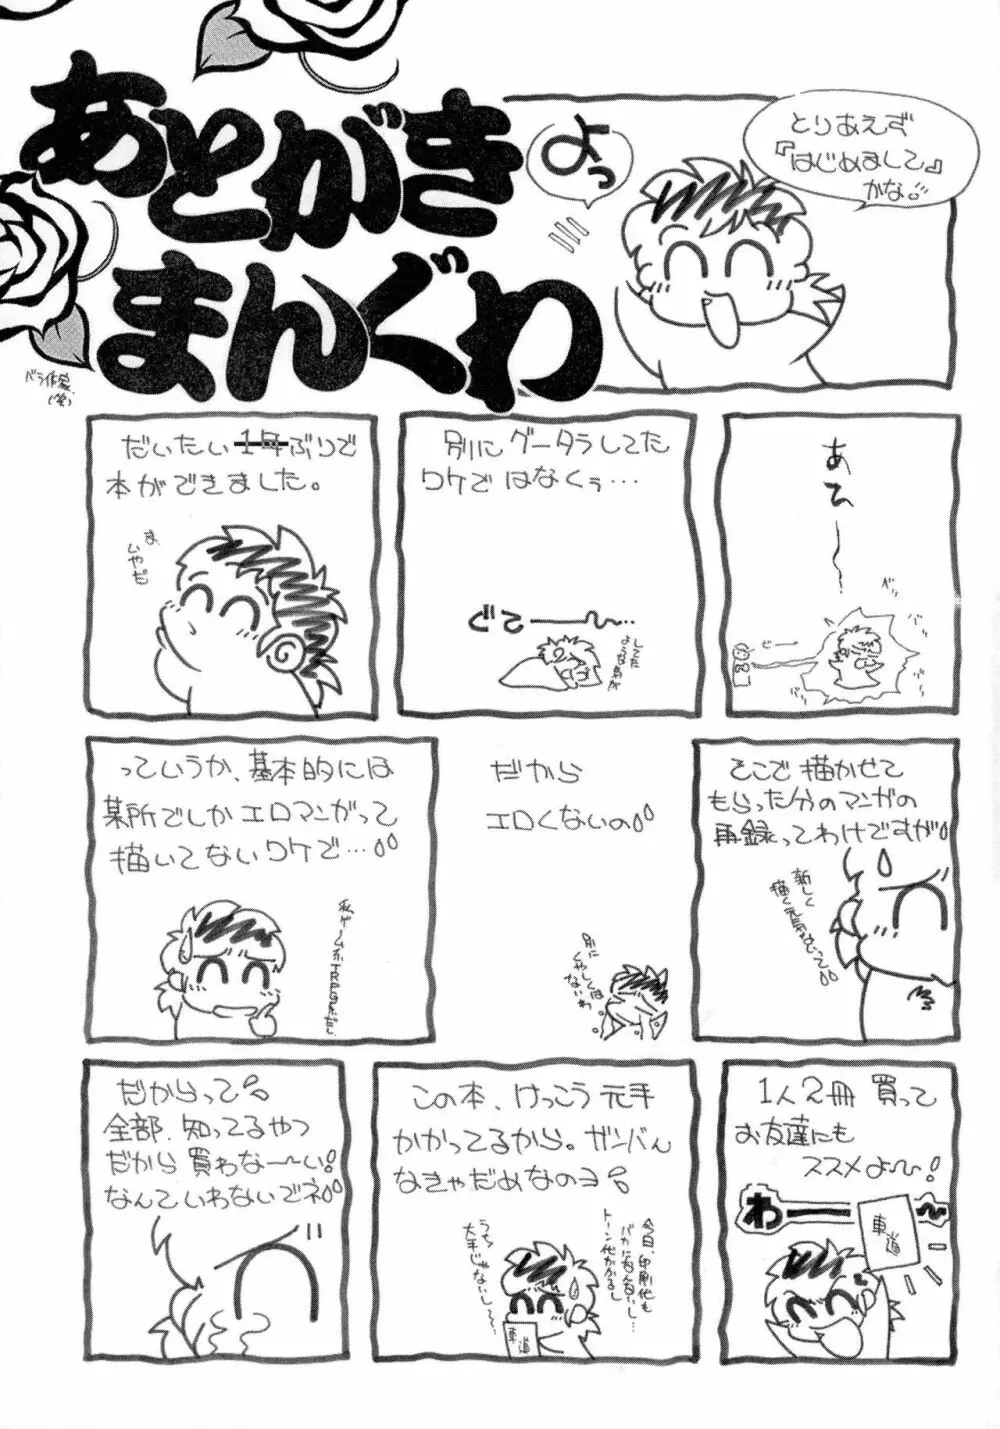 あとがき
まんぐわ
バラ作家
(笑)
よっ
とりあえず
『はじめまして』
かな
だいたい1年ぶりで
本ができました。
ま、
いやだ
別にグータラしてた
ワケではなくぅ…
どて
してた
ような気が
あて
って
いうか、基本的には
某所でしかエロマンガって
描いてないワケで…
だから
エロくないの
別に
くやしく
ないわ
そこで描かせて
もらった分のマンガの
再録ってわけですが
新しく
描く
だからって
全部、知ってるやつ
だから買わな〜い!
なんていわないでネ
この本、けっこう元手
かかってるから。ガンバん
なきゃだめなのヨ
うち
大手じゃないし〜
今日、印刷代も
バカになんないし…
トーン代かかるし
車道
1人2冊買って
お友達にも
ススメよ〜!
わー〜
車道